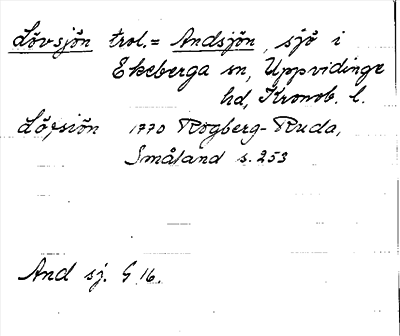 Lövsjön trol. = Andsjön, sjö i
Ekeberga sn, Uppvidinge
hd, Kronob. l.
Löfsiön 1770 Rogberg-Ruda,
Småland s. 253
And sj. G 16.